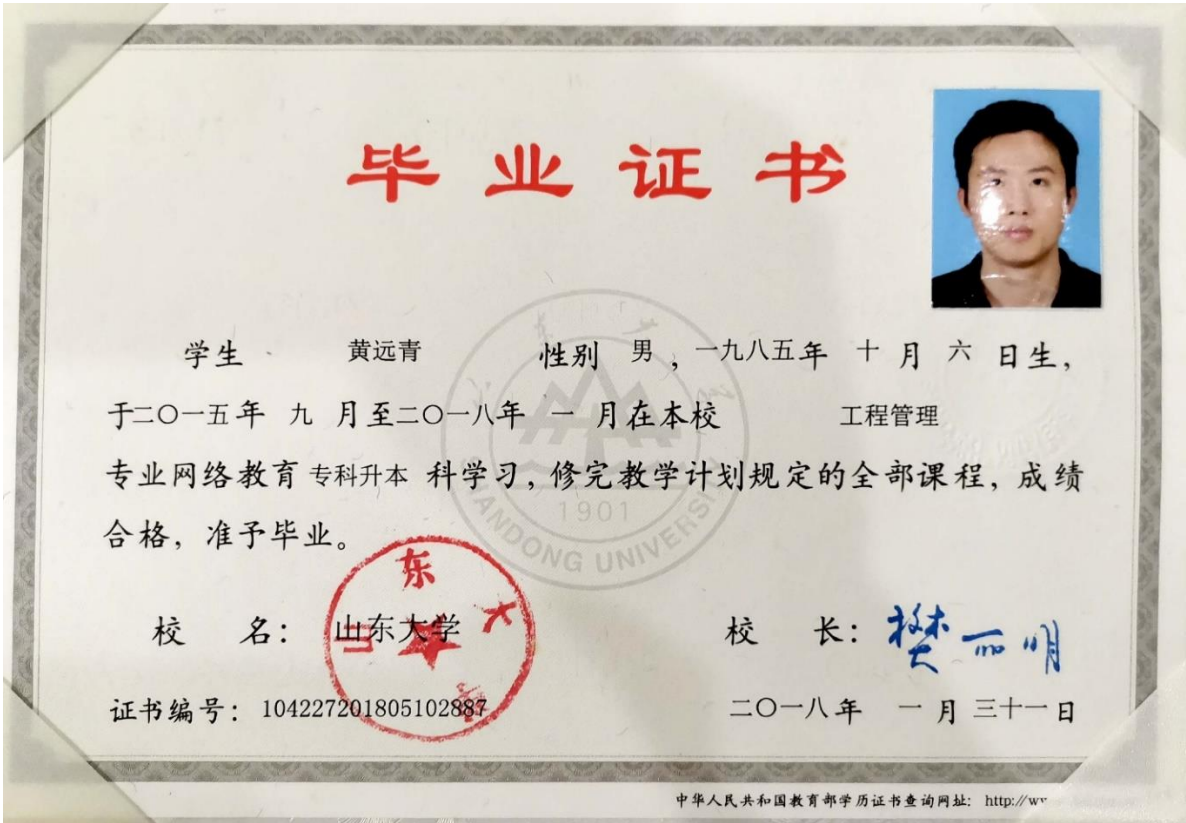 毕业证书
学生 黄远青 性别 男，一九八五年 十 月 六 日生，
于二〇一五年 九 月至二〇一八年 一 月在本校 工程管理
专业网络教育 专科升本 科学习，修完教学计划规定的全部课程，成绩
合格，准予毕业。
SHANDONG UNIVERSITY
1901
校 名：山东大学
山东大学
校 长：樊丽明
证书编号：104227201805102887
二〇一八年 一 月 三十一日
中华人民共和国教育部学历证书查询网址：http://ww